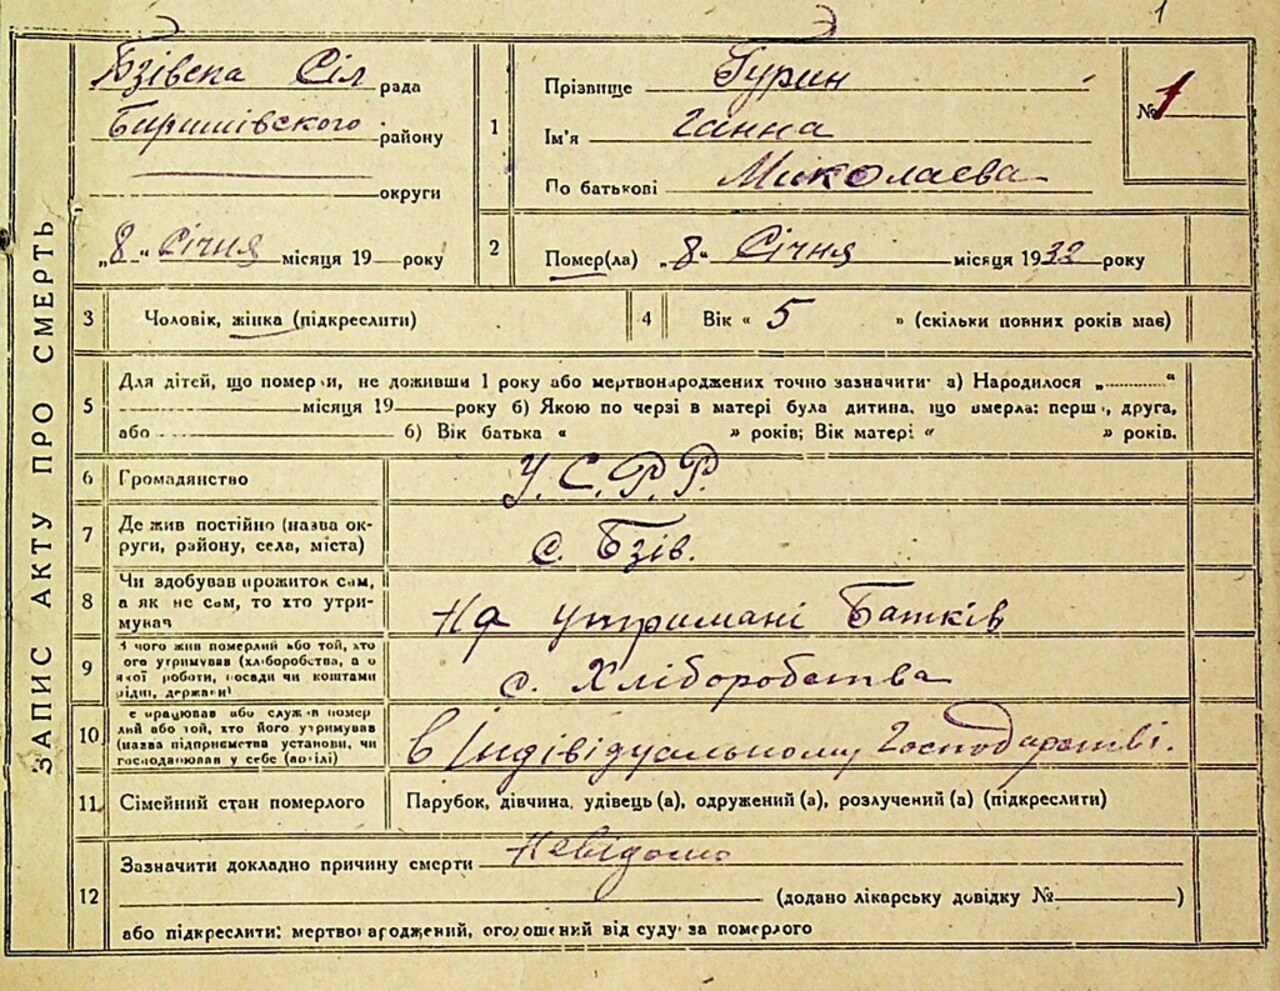 1
ЗАПИС АКТУ ПРО СМЕРТЬ
Бзівска Сіл рада
Баришівского району
округи
„8“ Січня місяця 19 року
1 Прізвище Гурин
Ім'я Ганна
По батькові Миколаєва
№ 1
2 Помер(ла) „8“ Січня місяця 1932 року
3 Чоловік, жінка (підкреслити)
4 Вік « 5 » (скільки повних років має)
5 Для дітей, що померли, не доживши 1 року або мертвонароджених точно зазначити: а) Народилося „ “
місяця 19 року б) Якою по черзі в матері була дитина, що вмерла: перша, друга,
або б) Вік батька « » років; Вік матері « » років.
6 Громадянство У.С.Р.Р.
7 Де жив постійно (назва ок-
руги, району, села, міста) с. Бзів.
8 Чи здобував прожиток сам,
а як не сам, то хто утри-
мував На утримані Батків
9 З чого жив померлий або той, хто
його утримував (хліборобства, а о
якої роботи, посади чи коштами
рідні, держави) с. Хліборобства
10 Де працював або служив помер
лий або той, хто його утримував
(назва підприємства установи, чи
господарював у себе (вдома) в Індівідуальному Господарстві.
11 Сімейний стан померлого Парубок, дівчина, удівець (а), одружений (а), розлучений (а) (підкреслити)
12 Зазначити докладно причину смерти Невідомо
(додано лікарську довідку № )
або підкреслити: мертвонароджений, оголошений від суду за померлого